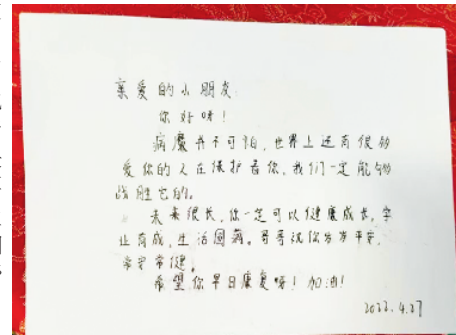 亲爱的小朋友:
你好呀!
病魔并不可怕,世界上还有很多
爱你的人在保护着你,我们一定能够
战胜它的。
未来很长,你一定可以健康成长,学
业有成,生活圆满。哥哥祝你岁岁平安,
常安常健。
希望你早日康复呀!加油!
2022.4.27